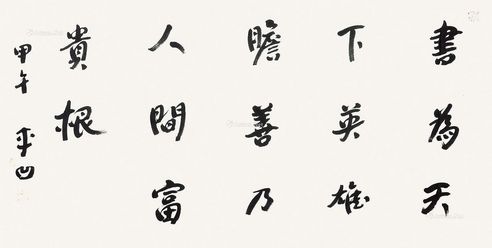 書為天
下英雄
膽善乃
人間富
貴根
甲午 平凹